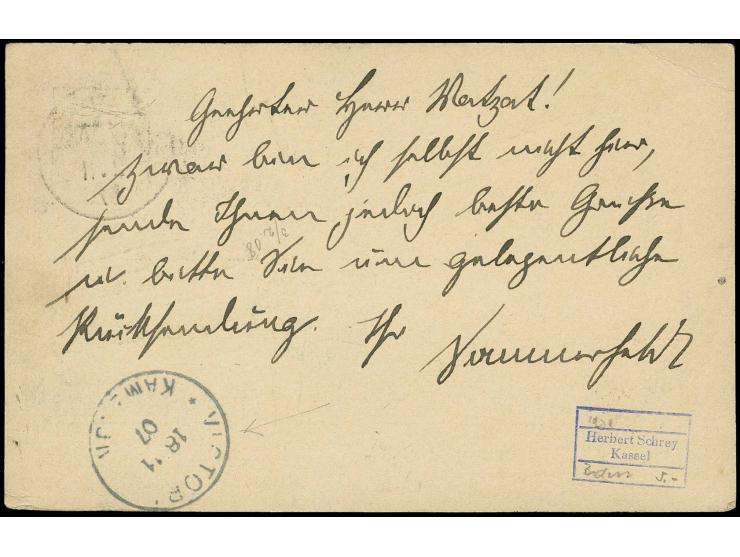 Geehrter Herr Watzat!
Zwar bin ich selbst nicht hier,
sende Ihnen jedoch beste Grüsse
u. bitte Sie um gelegentliche
Rücksendung. Ihr Sommerfeldt
3/2.08
VICTORIA
* KAMERUN
18 11
07
Herbert Schrey
Kassel
5.-